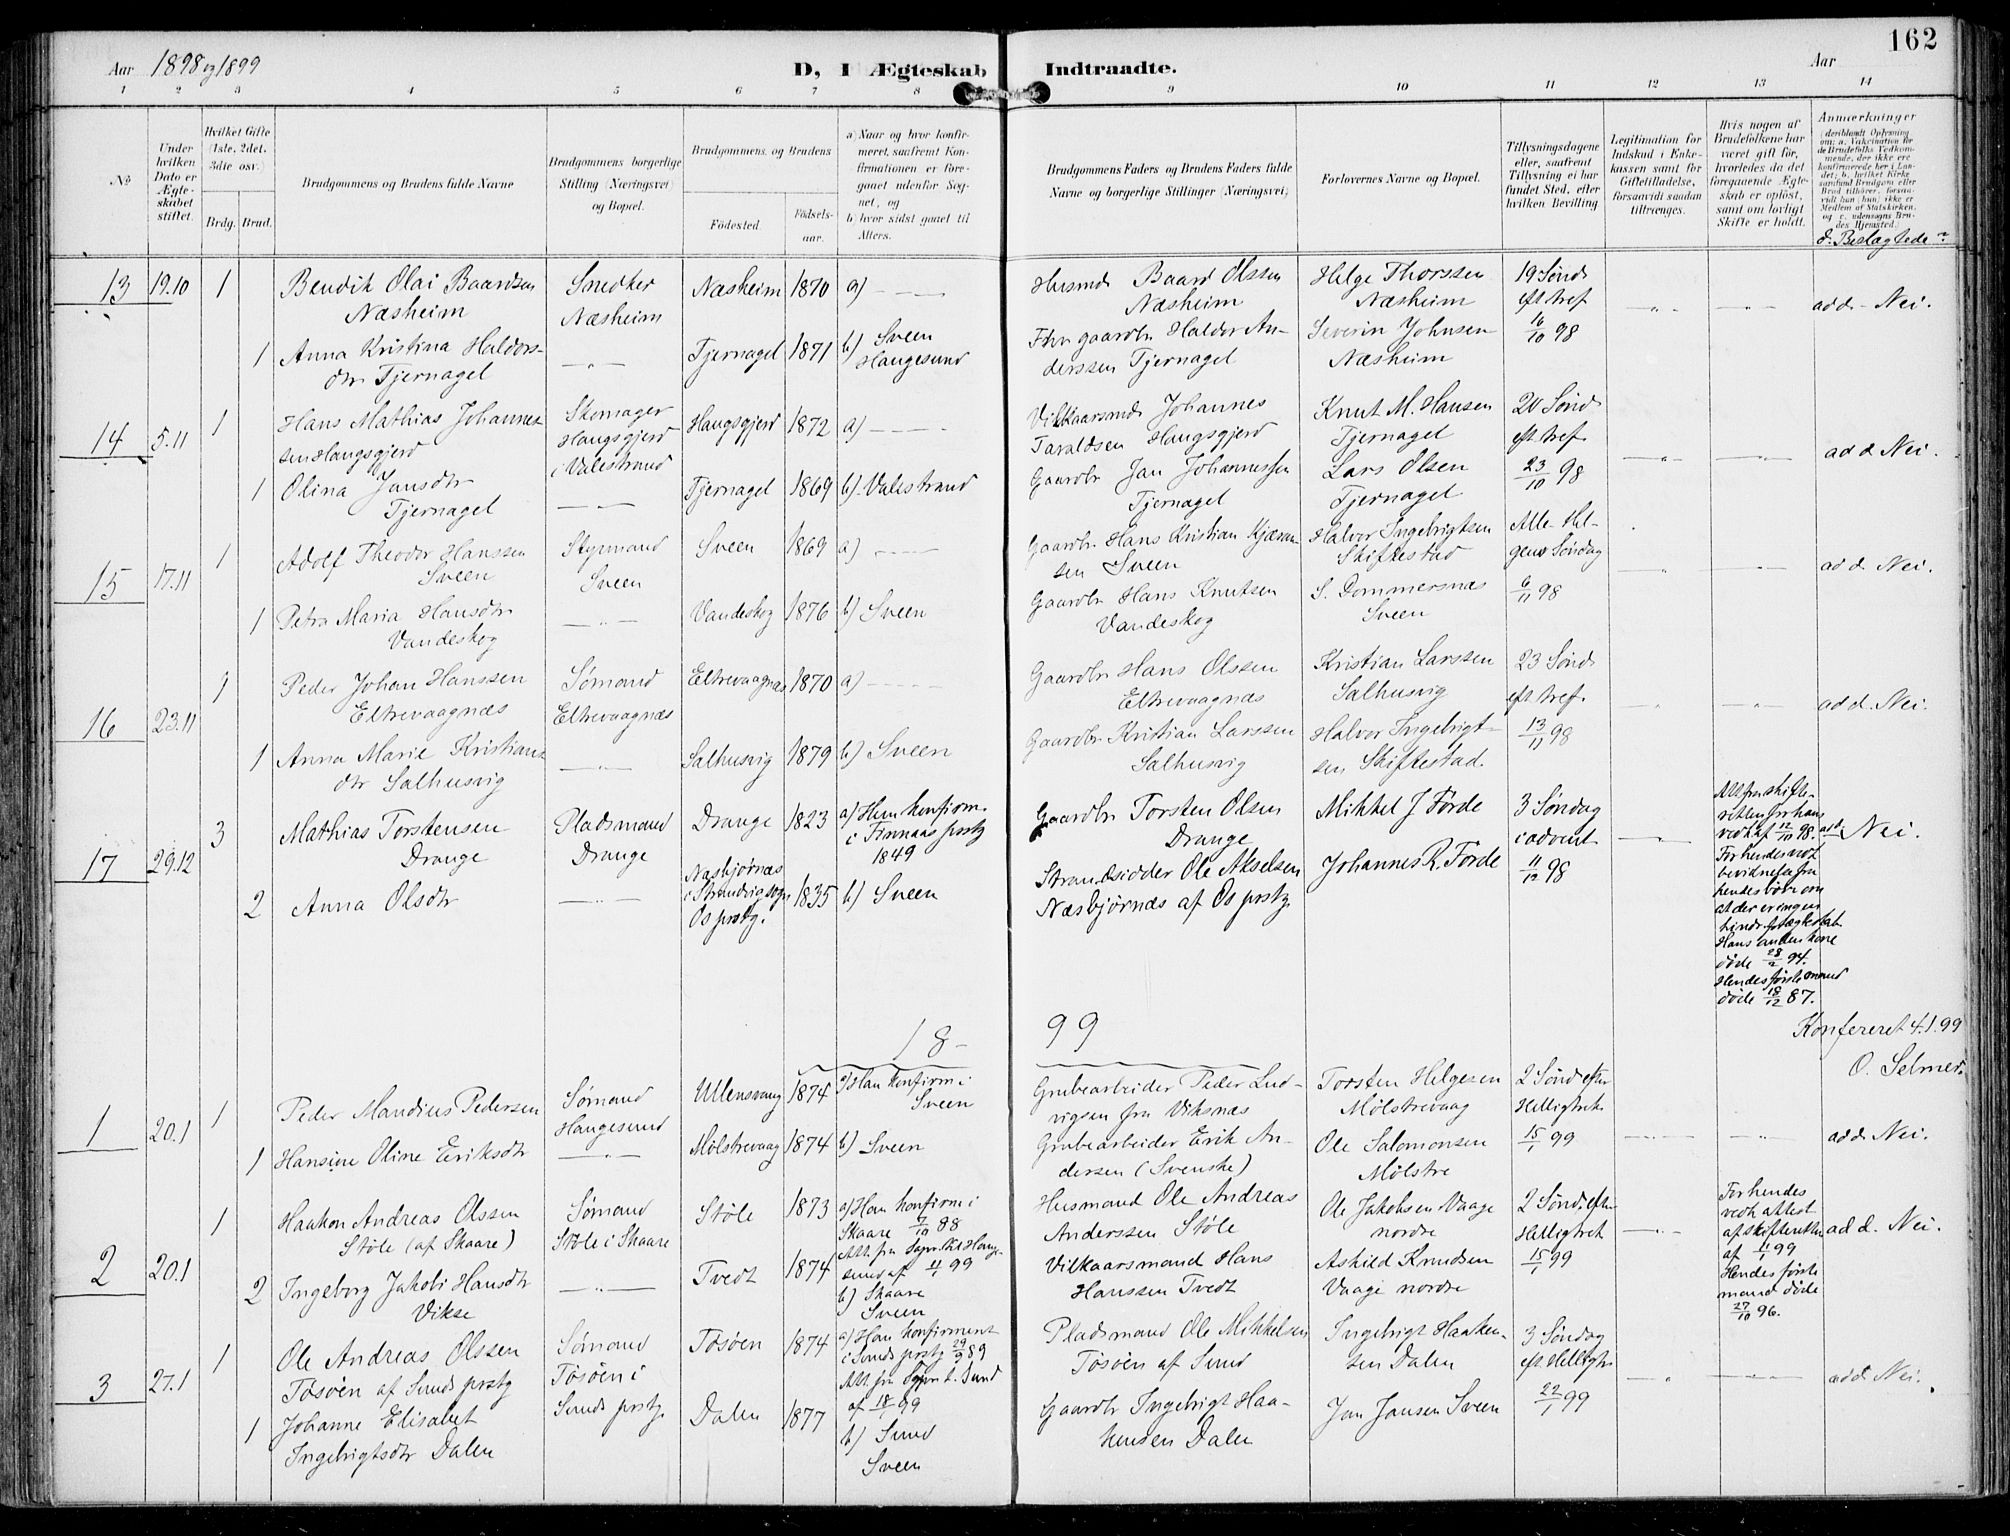 162
Aar 1898 og 1899
D, I Ægteskab Indtraadte.
Aar
1 2 3 4 5 6 7 8 9 10 11 12 13 14
No
Under hvilken Dato er Ægteskabet stiftet.
Hvilket Gifte (1ste, 2det, 3die osv.)
Brdg. Brud.
Brudgommens og Brudens fulde Navne
Brudgommens borgerlige Stilling (Næringsvei) og Bopæl.
Brudgommens og Brudens
Födested.
Födselsaar.
a) Naar og hvor konfirmeret, saafremt Konfirmationen er foregaaet udenfor Sognet, og
b) hvor sidst gaaet til Alters.
Brudgommens Faders og Brudens Faders fulde Navne og borgerlige Stillinger (Næringsvei)
Forlovernes Navne og Bopæl.
Tillysningsdagene eller, saafremt Tillysning ei har fundet Sted, efter hvilken Bevilling
Legitimation for Indskud i Enkekassen samt for Giftetilladelse, forsaavidt saadan tiltrænges.
Hvis nogen af Brudefolkene har været gift før, hvorledes da det foregaaende Ægteskab er opløst, samt om lovligt Skifte er holdt.
Anmærkninger (deriblandt Oplysning om: a. Vakcination for de Brudefolks Vedkommende, der ikke ere konfirmerede her i Landet; b. hvilket Kirkesamfund Brudgom eller Brud tilhører, forsaavidt han (hun) ikke er Medlem af Statskirken, og c. udensogns Brudes Hjemsted.)
d. Beslægtede?
13 19.10 1 Bendik Olai Baardsen
Næsheim
Snedker
Næsheim
Næsheim 1870 a) - - -
Husmd Baard Olssen
Næsheim
Helge Thorssen
Næsheim
19 Sønd
eft tref
16/10 98
ad d. Nei.
1 Anna Kristina Haldorsdtr Tjernagel
Tjernagel 1871 b) Sveen
Haugesund
Fhv gaardbr Haldor Anderssen Tjernagel
Severin Johnsen
Næsheim
14 5.11 1 Hans Mathias Johannessen Haugsgjerd
Skomager
Haugsgjerd
i Valestrand
Haugsgjerd 1872 a) - - -
Vilkaarsmd Johannes
Taraldsen Haugsgjerd
Knut M. Hansen
Tjernagel
20 Sønd
eft tref
23/10 98
ad d Nei.
1 Olina Jansdtr
Tjernagel
Tjernagel 1869 b) Valestrand
Gaardbr Jan Johannessen
Tjernagel
Lars Olsen
Tjernagel
15 17.11 1 Adolf Theodor Hanssen
Sveen
Styrmand
Sveen
Sveen 1869 a) - - -
Gaardbr Hans Kristian Kjæransen Sveen
Halvor Ingebrigtsen
Skiftestad
Alle Helgens Søndag
6/11 98
ad d. Nei.
1 Petra Maria Hansdtr
Vandeskog
Vandeskog 1876 b) Sveen
Gaardbr Hans Knutsen
Vandeskog
S. Dommersnæs
Sveen
16 23.11 1 Peder Johan Hanssen
Eltrevaagnæs
Sømand
Eltrevaagnæs
Eltrevaagnæs 1870 a) - - -
Gaardbr Hans Olssen
Eltrevaagnæs
Kristian Larssen
Salhusvig
23 Sønd
eft tref
13/11 98
ad d. Nei.
1 Anna Marie Kristiansdtr Salhusvig
Salhusvig 1879 b) Sveen
Gaardbr Kristian Larssen
Salhusvig
Halvor Ingebrigtsen Skiftestad.
17 29.12 3 Mathias Torstensen
Drange
Pladsmand
Drange
Drange 1823 a) Han konfirm.
i Finnaas prstg
1849
Gaardbr Torsten Olsen
Drange
Mikkel J Førde
3 Søndag
i advent
11/12 98
Att fra skifteretten for ham
vedh af 12/10 98.
For hendes ved
bevidnes fra
hendes
at der er ingen
hindr f ægteskab
Hans anden kone
døde 28/2 94.
Hendes første mand
døde 18/12 87.
ad d Nei.
2 Anna Olsdtr
Næsbjørnæs
i Strandvig sogn
Os prstg.
1835 b) Sveen
Strandsidder Ole Akselsen
Næsbjørnæs af Os prstg.
Johannes R. Førde
Konfereret 4.1.99
O. Selmer.
18-99
1 20.1 1 Peder Mandius Pedersen
Sømand
Haugesund
Ullensvang 1874 a) Han konfirm i
Sveen
Grubearbeider Peder Ludvigsen fra Viksnæs
Torsten Helgesen
Mølstrevaag
2 Sønd efter
Helligtrek
15/1 99
ad d. Nei.
1 Hansine Oline Eriksdtr
Mølstrevaag 1874 b) Sveen
Grubearbeider Erik Andersen (Svenske)
Ole Salomonsen
Mølstre
2 20.1 1 Haakon Andreas Olssen
Støle (af Skaare)
Sømand
Støle i Skaare
Støle 1873 a) Han konfirm i
Skaare 7/10 88
Att. fra Sogn.Kl Haugesund af 11/1 99
b) Skaare
Sveen
Husmand Ole Andreas
Anderssen Støle
Ole Jakobsen Vaage
nordre
2 Sønd. efter
Helligtrek
15/1 99
For hendes
vedk attest
af skifteretten
af 11/1 99
Hendes første
mand døde
27/10 96.
ad d. Nei.
2 Ingeborg Jakobi Hansdtr
Vikse
Tvedt 1874
Vilkaarsmand Hans
Hanssen Tvedt
Askild Knudsen
Vaage nordre
3 27.1 1 Ole Andreas Olssen
Tøsøen af Sunds prstg
Sømand
Tøsøen i
Sunds prstg.
Tøsøen 1874 a) Han konfirmert
i Sunds prstg 29/9 89
Att. fra Sogn. t. Sund
af 18/1 99
b) Sund
Sveen
Pladsmand Ole Mikkelsen
Tøsøen af Sund
Ingebrigt Haakensen Dalen
3 Søndag
eft Helligtr
22/1 99
ad d. Nei.
1 Johanne Elisabet
Ingebrigtsdtr Dalen
Dalen 1877
Gaardbr Ingebrigt Haakensen Dalen
Jan Jansen Sveen